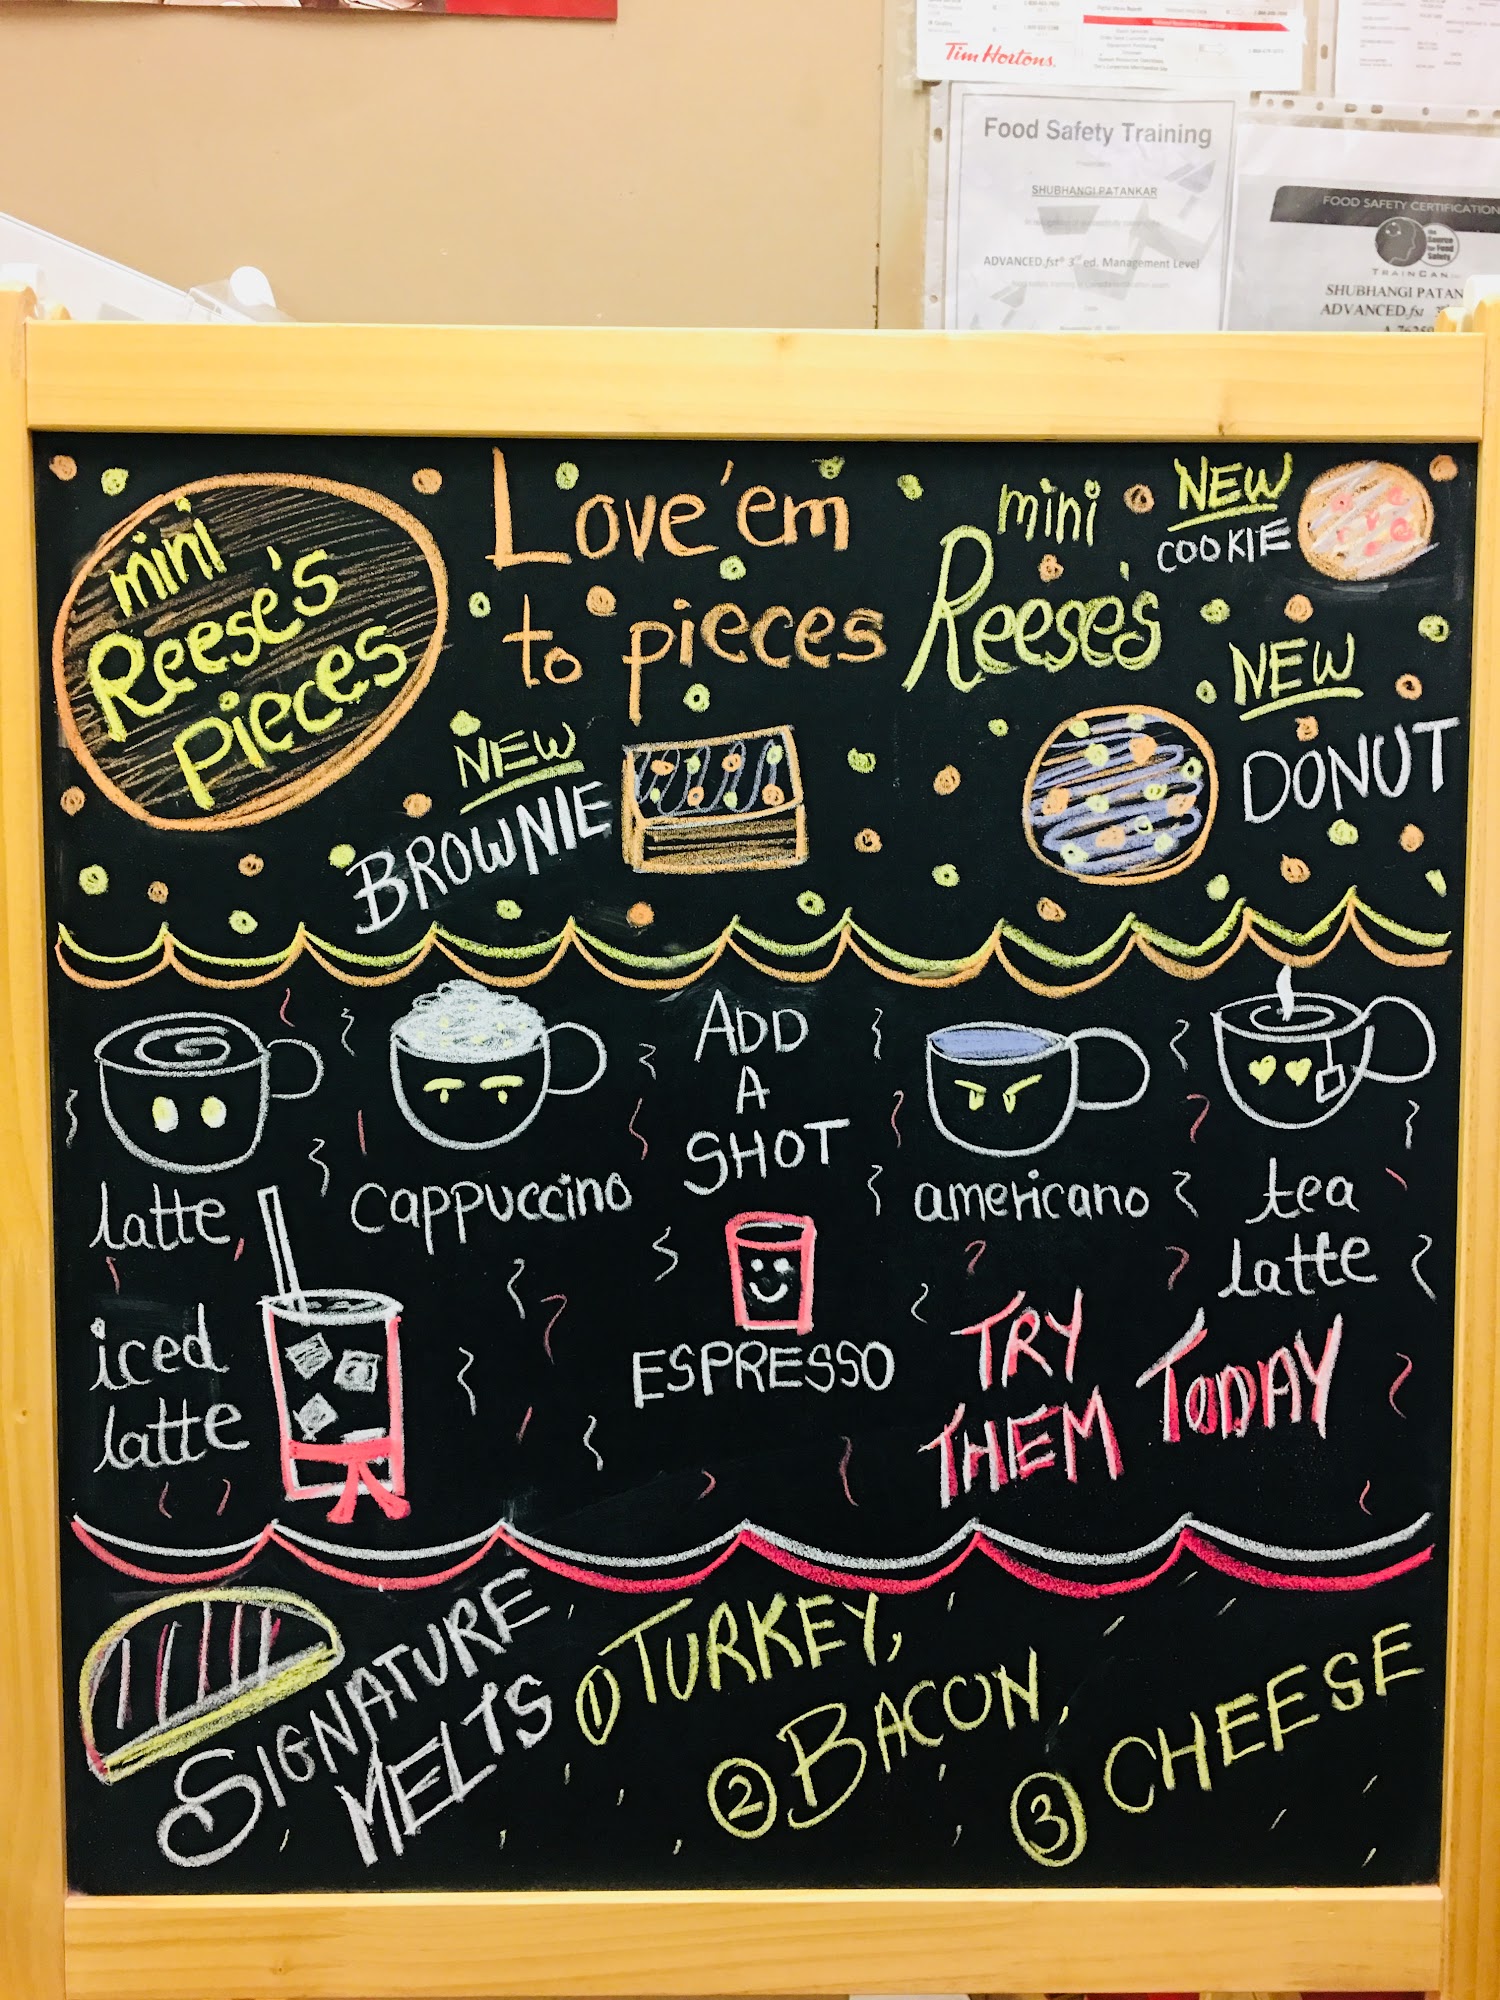 Tim Hortons.
Food Safety Training
SHUBHANGI PATANKAR
ADVANCED.fst® 3rd ed. Management Level
FOOD SAFETY CERTIFICATION
the Source for Food Safety
TRAINCAN
SHUBHANGI PATAN
ADVANCED.fst
mini
Reese's
pieces
Love 'em
to pieces
mini
Reese's
NEW
COOKIE
NEW
BROWNIE
NEW
DONUT
latte
cappuccino
ADD
A
SHOT
ESPRESSO
americano
tea
latte
iced
latte
TRY
THEM TODAY
SIGNATURE
MELTS
① TURKEY,
② BACON,
③ CHEESE